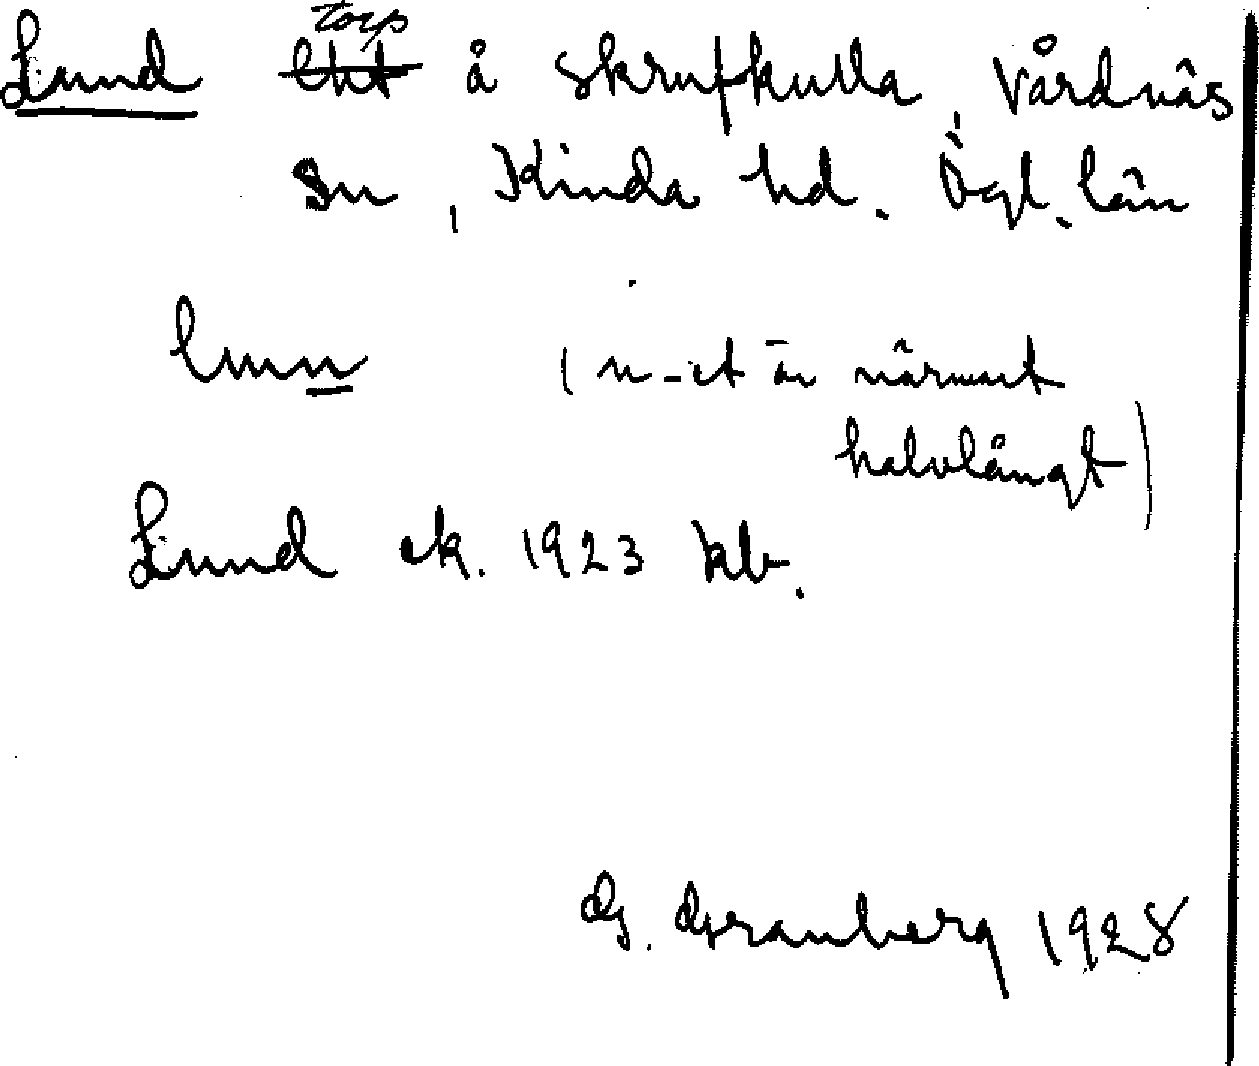 torp
Lund lht å Skrufkulla, Vårdnäs
Sn, Kinda hd. Ögl. län
lunn (n-et är närmast
halvlångt)
Lund ek. 1923 kb.
G. Granberg 1928